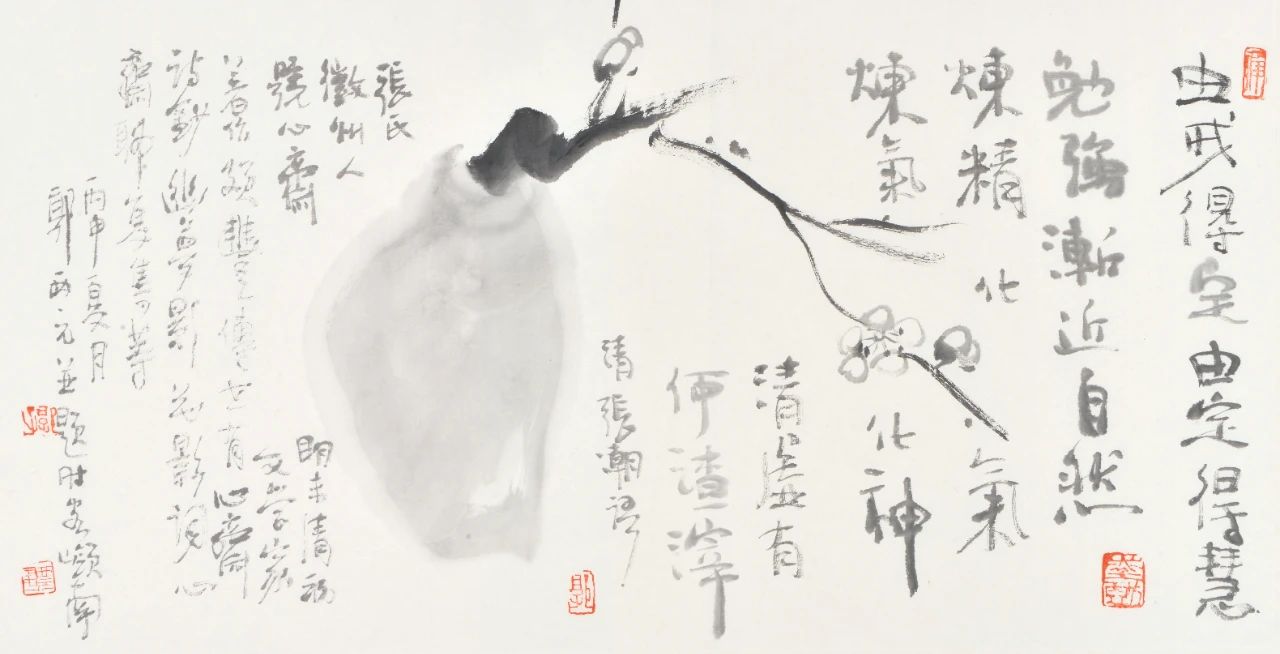 由戒得定由定得慧
勉強漸近自然
煉精化氣
煉氣化神
清虛有
何渣滓
清張潮語
張氏
徽州人
號心齋
明末清初
文學家
著作頗豐傳世有心齋
詩鈔幽夢影花影詞心
齋聊复集等
丙申夏月
郭西元並題時客嶺南